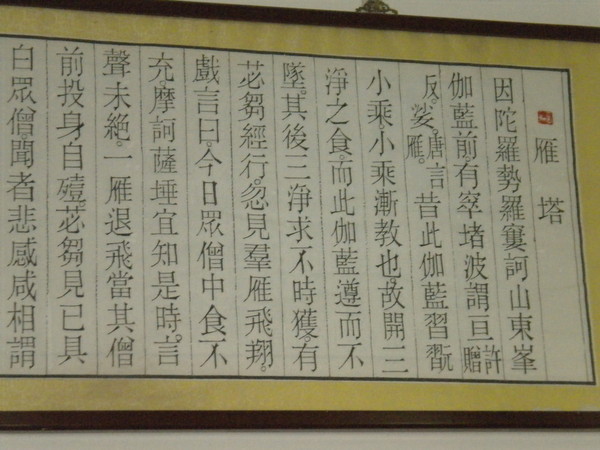 雁塔
因陀羅勢羅窶訶山東峯
伽藍前有窣堵波謂亘許贈
反。娑唐言雁。昔此伽藍習翫
小乘。小乘漸教也。故開三
淨之食。而此伽藍遵而不
墜。其後三淨求不時獲。有
苾芻經行。忽見羣雁飛翔。
戲言曰。今日眾僧中食不
充。摩訶薩埵宜知是時。言
聲未絕。一雁退飛當其僧
前投身自殪。苾芻見已具
白眾僧聞者悲感咸相謂